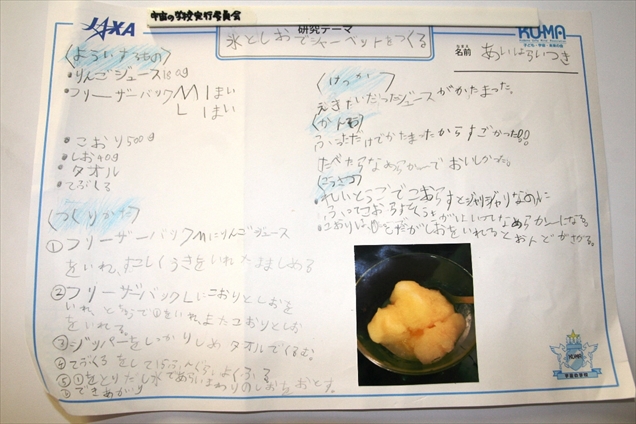 JAXA
宇宙の学校実行委員会
研究テーマ
氷としおでシャーベットをつくる
KU-MA
子ども・宇宙・未来の会
名前 あいはらいつき
〈よういするもの〉
・りんごジュース
・フリーザーバックM 1まい
L 1まい
・こおり500g
・しお
・タオル
・てぶくろ
〈つくりかた〉
① フリーザーバックMにりんごジュース
をいれ、すこしくうきをいれたまましめる
② フリーザーバックLにこおりとしおを
いれ、①をいれ、またこおりとしお
をいれる。
③ジッパーをしっかりしめタオルでくるむ
④てぶくろをして よくふる
⑤①をとりだし水であらいまわりのしおをおとす。
できあがり
〈けっか〉
えきたいだったジュースがかたまった。
ふっただけでかたまったからすごかった!!
たべたらなめらかーでおいしかった。
れいとうこでこおらすとジャリジャリなのに
なめらかーになる
しおをいれるとおんどがさがる。
KU-MA
宇宙の学校